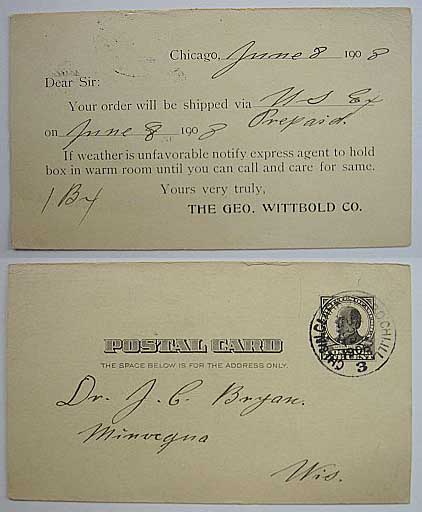 Chicago, June 8 1908
Dear Sir:
Your order will be shipped via U S Ex
on June 8 1908 Prepaid.
If weather is unfavorable notify express agent to hold
box in warm room until you can call and care for same.
Yours very truly,
1 Bx
THE GEO. WITTBOLD CO.
POSTAL CARD
THE SPACE BELOW IS FOR THE ADDRESS ONLY.
3
Dr. J. C. Bryan.
Minocqua
Wis.